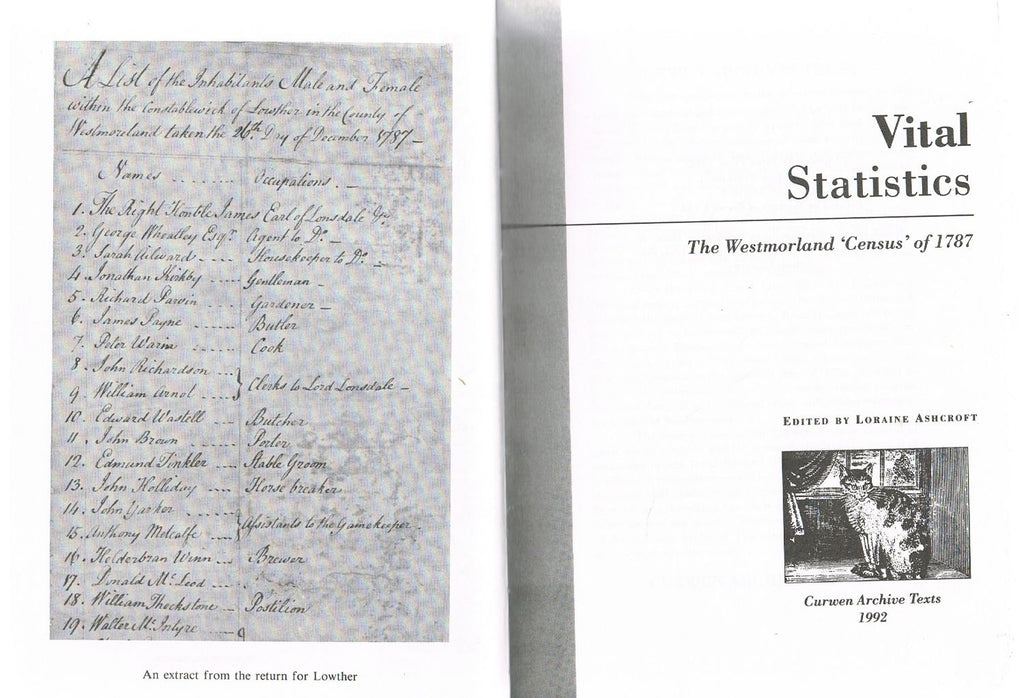 A List of the Inhabitants Male and Female
within the Constablewick of Lowther in the County of
Westmoreland taken the 26th Day of December 1787 -
Names ....... Occupations. -
1. The Right Honble James Earl of Lonsdale &c.
2. George Wheatley Esqr. Agent to Do. -
3. Sarah Ailward .... Housekeeper to Do. -
4. Jonathan Kirkby .... Gentleman -
5. Richard Parvin .... Gardener -
6. James Payne ...... Butler
7. Peter Warin ...... Cook
8. John Richardson ...
9. William Arnol .... } Clerks to Lord Lonsdale -
10. Edward Wastell .... Butcher
11. John Brown ...... Porter
12. Edmund Tinkler .... Stable Groom
13. John Holliday .... Horse breaker
14. John Yarker ....
15. Anthony Metcalfe ... } Assistants to the Gamekeeper -
16. Helderbran Winn ... Brewer
17. Donald Mc. Leod ....
18. William Theckstone - Postilion
19. Walter Mc. Intyre ....
An extract from the return for Lowther
Vital
Statistics
The Westmorland ‘Census’ of 1787
EDITED BY LORAINE ASHCROFT
Curwen Archive Texts
1992